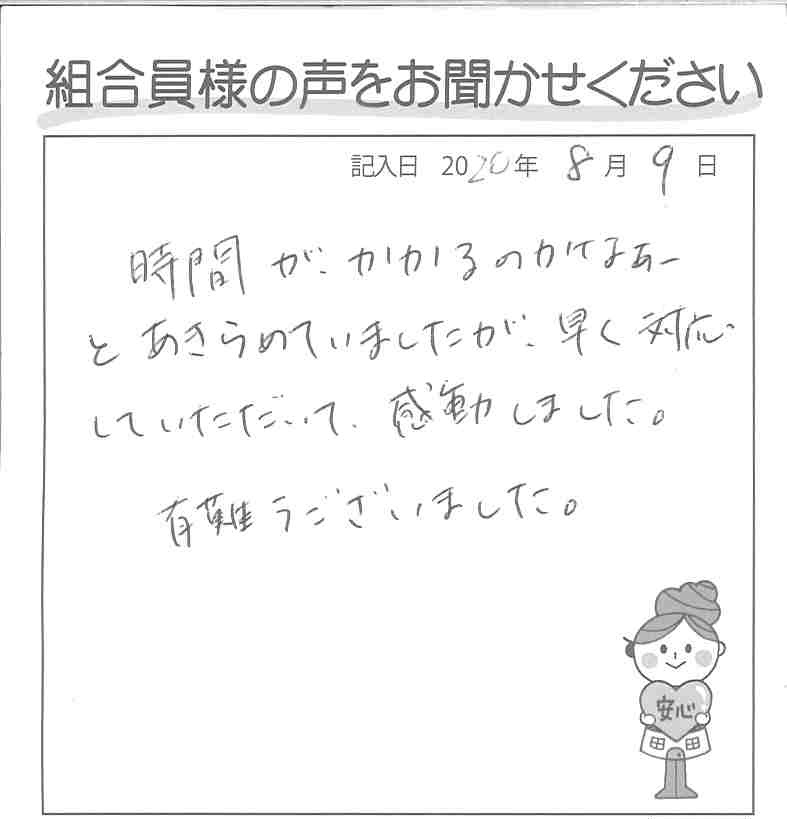 組合員様の声をお聞かせください
記入日 2020年 8月 9日
時間が、かかるのかなぁー
とあきらめていましたが、早く対応
していただいて、感動しました。
有難うございました。
安心